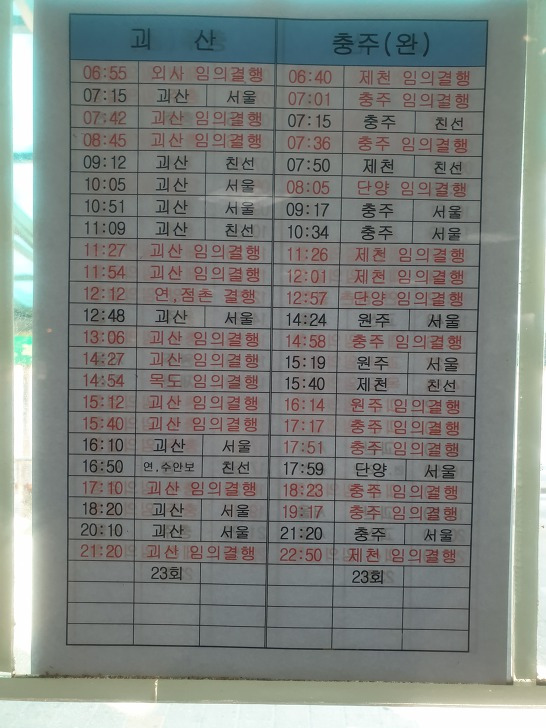 괴 산 충주(완)
06:55 외사 임의결행 06:40 제천 임의결행
07:15 괴산 서울 07:01 충주 임의결행
07:42 괴산 임의결행 07:15 충주 친선
08:45 괴산 임의결행 07:36 충주 임의결행
09:12 괴산 친선 07:50 제천 친선
10:05 괴산 서울 08:05 단양 임의결행
10:51 괴산 서울 09:17 충주 서울
11:09 괴산 친선 10:34 충주 서울
11:27 괴산 임의결행 11:26 제천 임의결행
11:54 괴산 임의결행 12:01 제천 임의결행
12:12 연,점촌 결행 12:57 단양 임의결행
12:48 괴산 서울 14:24 원주 서울
13:06 괴산 임의결행 14:58 충주 임의결행
14:27 괴산 임의결행 15:19 원주 서울
14:54 목도 임의결행 15:40 제천 친선
15:12 괴산 임의결행 16:14 원주 임의결행
15:40 괴산 임의결행 17:17 충주 임의결행
16:10 괴산 서울 17:51 충주 임의결행
16:50 연,수안보 친선 17:59 단양 서울
17:10 괴산 임의결행 18:23 충주 임의결행
18:20 괴산 서울 19:17 충주 임의결행
20:10 괴산 서울 21:20 충주 서울
21:20 괴산 임의결행 22:50 제천 임의결행
23회 23회